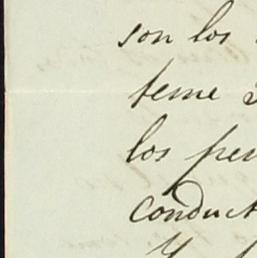 son los
teme
los
conduct
Y